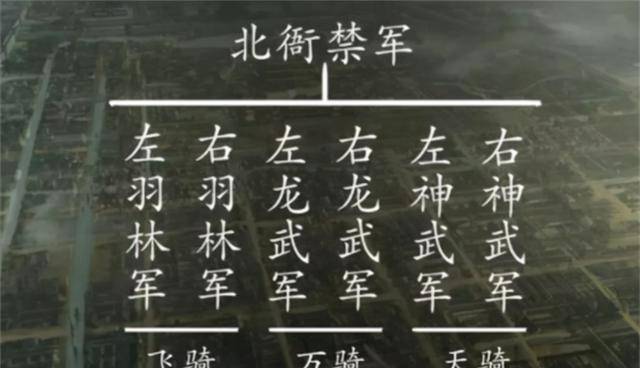 北衙禁军
左羽林军
右羽林军
左龙武军
右龙武军
左神武军
右神武军
飞骑
万骑
天骑